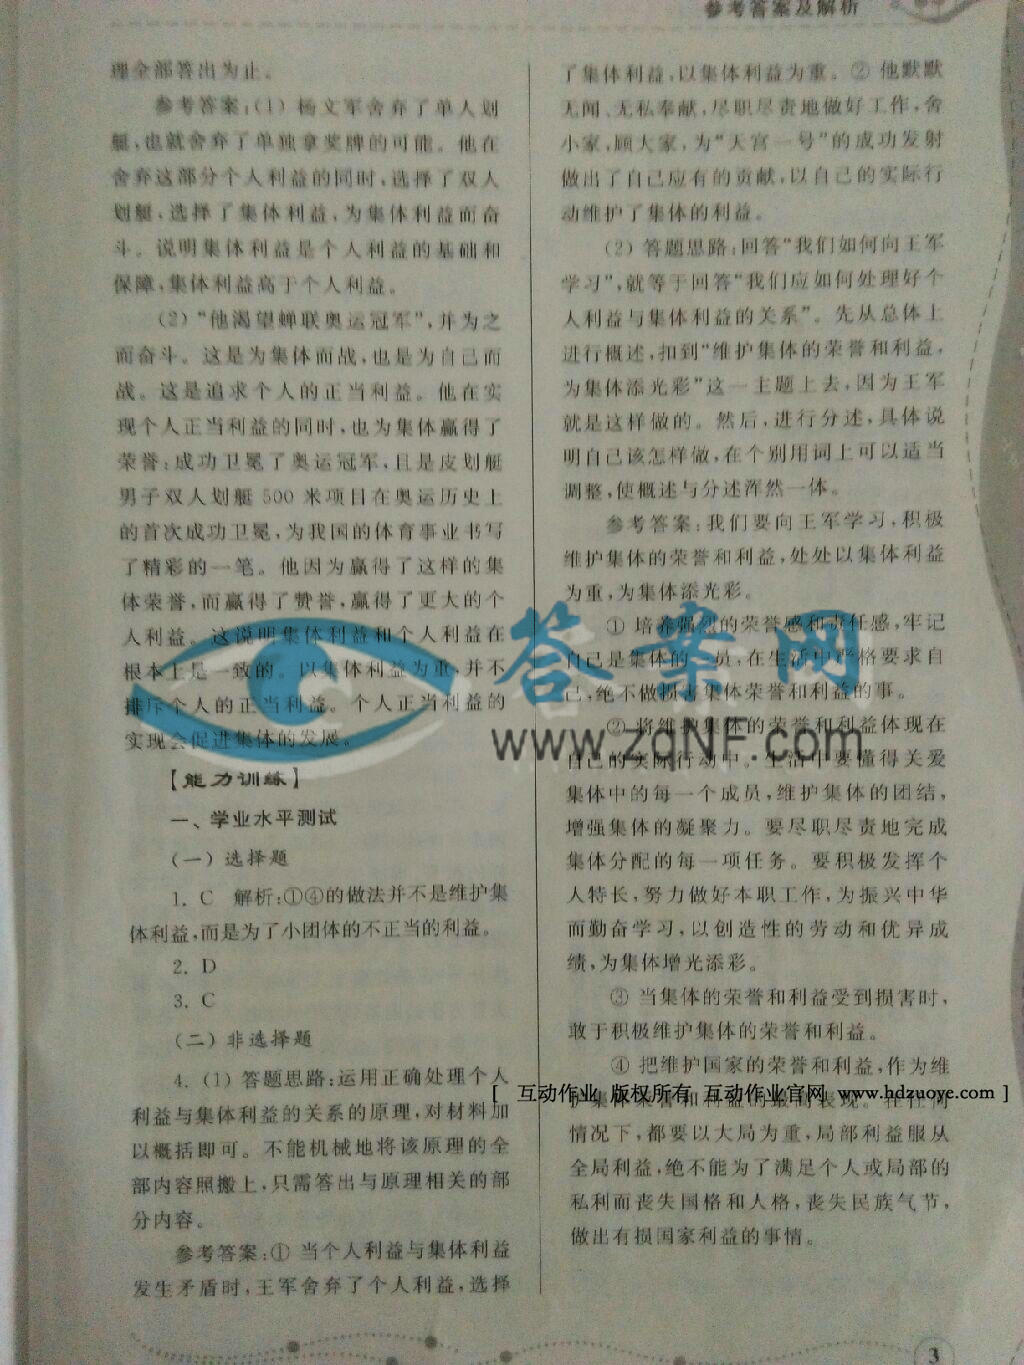 参考答案及解析
理全部答出为止。
参考答案:(1) 杨文军舍弃了单人划
艇,也就舍弃了单独拿奖牌的可能。他在
舍弃这部分个人利益的同时,选择了双人
划艇,选择了集体利益,为集体利益而奋
斗。说明集体利益是个人利益的基础和
保障,集体利益高于个人利益。
(2)“他渴望蝉联奥运冠军”,并为之
而奋斗。这是为集体而战,也是为自己而
战。这是追求个人的正当利益。他在实
现个人正当利益的同时,也为集体赢得了
荣誉:成功卫冕了奥运冠军,且是皮划艇
男子双人划艇 500 米项目在奥运历史上
的首次成功卫冕,为我国的体育事业书写
了精彩的一笔。他因为赢得了这样的集
体荣誉,而赢得了赞誉,赢得了更大的个
人利益。这说明集体利益和个人利益在
根本上是一致的。以集体利益为重,并不
排斥个人的正当利益。个人正当利益的
实现会促进集体的发展。
【能力训练】
一、学业水平测试
(一) 选择题
1. C 解析:①④的做法并不是维护集
体利益,而是为了小团体的不正当的利益。
2. D
3. C
(二) 非选择题
4. (1) 答题思路:运用正确处理个人
利益与集体利益的关系的原理,对材料加
以概括即可。不能机械地将该原理的全
部内容照搬上,只需答出与原理相关的部
分内容。
参考答案:① 当个人利益与集体利益
发生矛盾时,王军舍弃了个人利益,选择
了集体利益,以集体利益为重。② 他默默
无闻、无私奉献,尽职尽责地做好工作,舍
小家,顾大家,为“天宫一号”的成功发射
做出了自己应有的贡献,以自己的实际行
动维护了集体的利益。
(2) 答题思路:回答“我们如何向王军
学习”,就等于回答“我们应如何处理好个
人利益与集体利益的关系”。先从总体上
进行概述,扣到“维护集体的荣誉和利益,
为集体添光彩”这一主题上去,因为王军
就是这样做的。然后,进行分述,具体说
明自己该怎样做,在个别用词上可以适当
调整,使概述与分述浑然一体。
参考答案:我们要向王军学习,积极
维护集体的荣誉和利益,处处以集体利益
为重,为集体添光彩。
① 培养强烈的荣誉感和责任感,牢记
自己是集体的一员,在生活中严格要求自
己,绝不做损害集体荣誉和利益的事。
② 将维护集体的荣誉和利益体现在
自己的实际行动中。生活中要懂得关爱
集体中的每一个成员,维护集体的团结,
增强集体的凝聚力。要尽职尽责地完成
集体分配的每一项任务。要积极发挥个
人特长,努力做好本职工作,为振兴中华
而勤奋学习,以创造性的劳动和优异成
绩,为集体增光添彩。
③ 当集体的荣誉和利益受到损害时,
敢于积极维护集体的荣誉和利益。
④ 把维护国家的荣誉和利益,作为维
护集体荣誉和利益的最高表现。在任何
情况下,都要以大局为重,局部利益服从
全局利益,绝不能为了满足个人或局部的
私利而丧失国格和人格,丧失民族气节,
做出有损国家利益的事情。
答案网
www.zqNF.com
[ 互动作业 版权所有 互动作业官网 www.hdzuoye.com ]
3